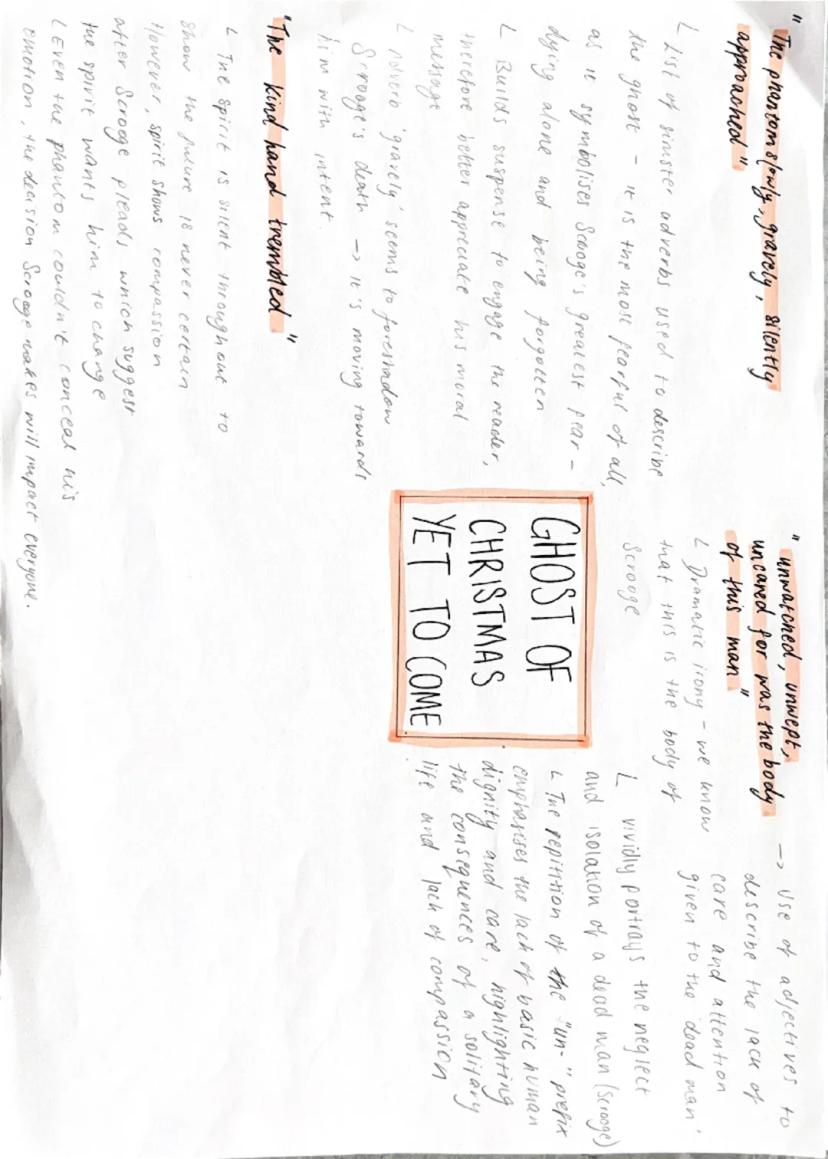 "The phantom slowly, gravely, silently
approached"
L List of sinister adverbs used to describe
the ghost - it is the most fearful of all,
as it symbolises Scrooge's greatest fear -
dying alone and being forgotten
L Builds suspense to engage the reader,
therefore better appreciate his moral
message
L adverb 'gravely' seems to foreshadow
Scrooge's death -> it's moving towards
him with intent
"The kind hand trembled"
L The spirit is silent throughout to
show the future is never certain
However, spirit shows compassion
after Scrooge pleads which suggest
the spirit wants him to change
L Even the phantom couldn't conceal his
emotion, the decision Scrooge makes will impact everyone.
GHOST OF
CHRISTMAS
YET TO COME
"unwatched, unwept,
uncared for was the body
of this man"
L Dramatic irony - we know
that this is the body of
Scrooge
-> Use of adjectives to
describe the lack of
care and attention
given to the 'dead man'
L vividly portrays the neglect
and isolation of a dead man (Scrooge)
L The repitition of the "un-" prefix
emphasises the lack of basic human
dignity and care, highlighting
the consequences of a solitary
life and lack of compassion